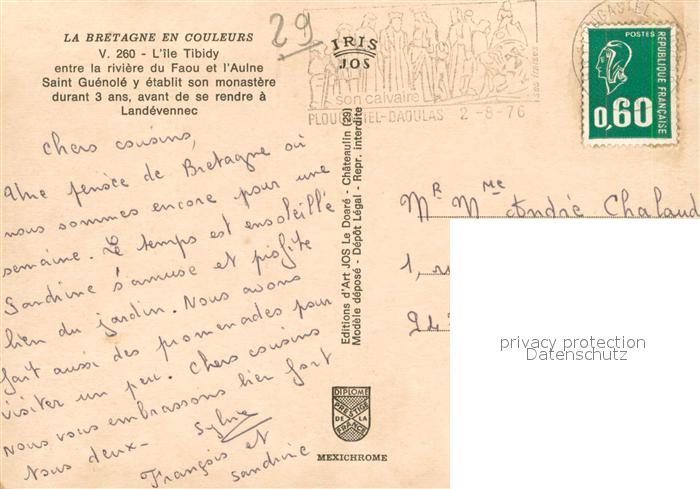 LA BRETAGNE EN COULEURS
V. 260 - L'île Tibidy
entre la rivière du Faou et l'Aulne
Saint Guénolé y établit son monastère
durant 3 ans, avant de se rendre à
Landévennec
29
IRIS
JOS
son calvaire
PLOUGASTEL-DAOULAS 2-8-76
POSTES
RÉPUBLIQUE FRANÇAISE
0,60
Chers cousins,
Une pensée de Bretagne où
nous sommes encore pour une
semaine. Le temps est ensoleillé
Sandrine s'amuse et profite
bien du jardin. Nous avons
fait aussi des promenades pour
visiter un peu. Chers cousins
nous vous embrassons bien fort
Nous deux-
Sylvie
François et
Sandrine
Editions d'Art JOS Le Doaré - Châteaulin (29)
Modèle déposé - Dépôt Légal - Repr. interdite
Mr Mme André Chalaud
1, ru
243
privacy protection
Datenschutz
DIPLOME
PRESTIGE
DE LA
FRANCE
MEXICHROME